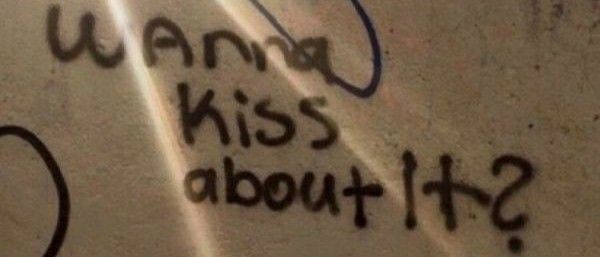 wAnna
Kiss
about It?